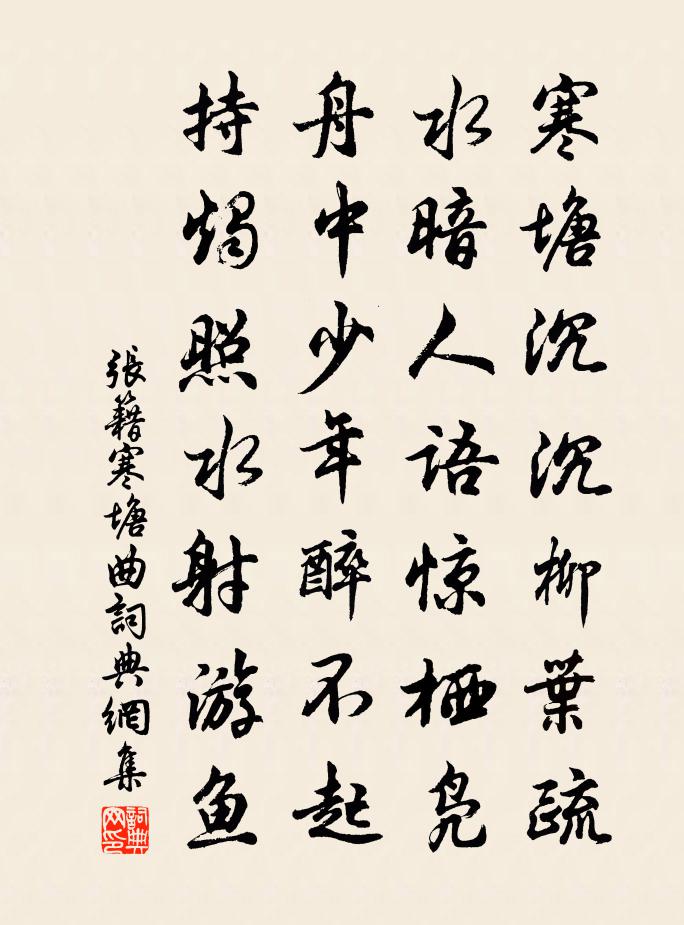 寒塘沉沉柳葉疏
水暗人語惊栖凫
舟中少年醉不起
持燭照水射游鱼
張籍寒塘曲詞典網集
詞典
网印